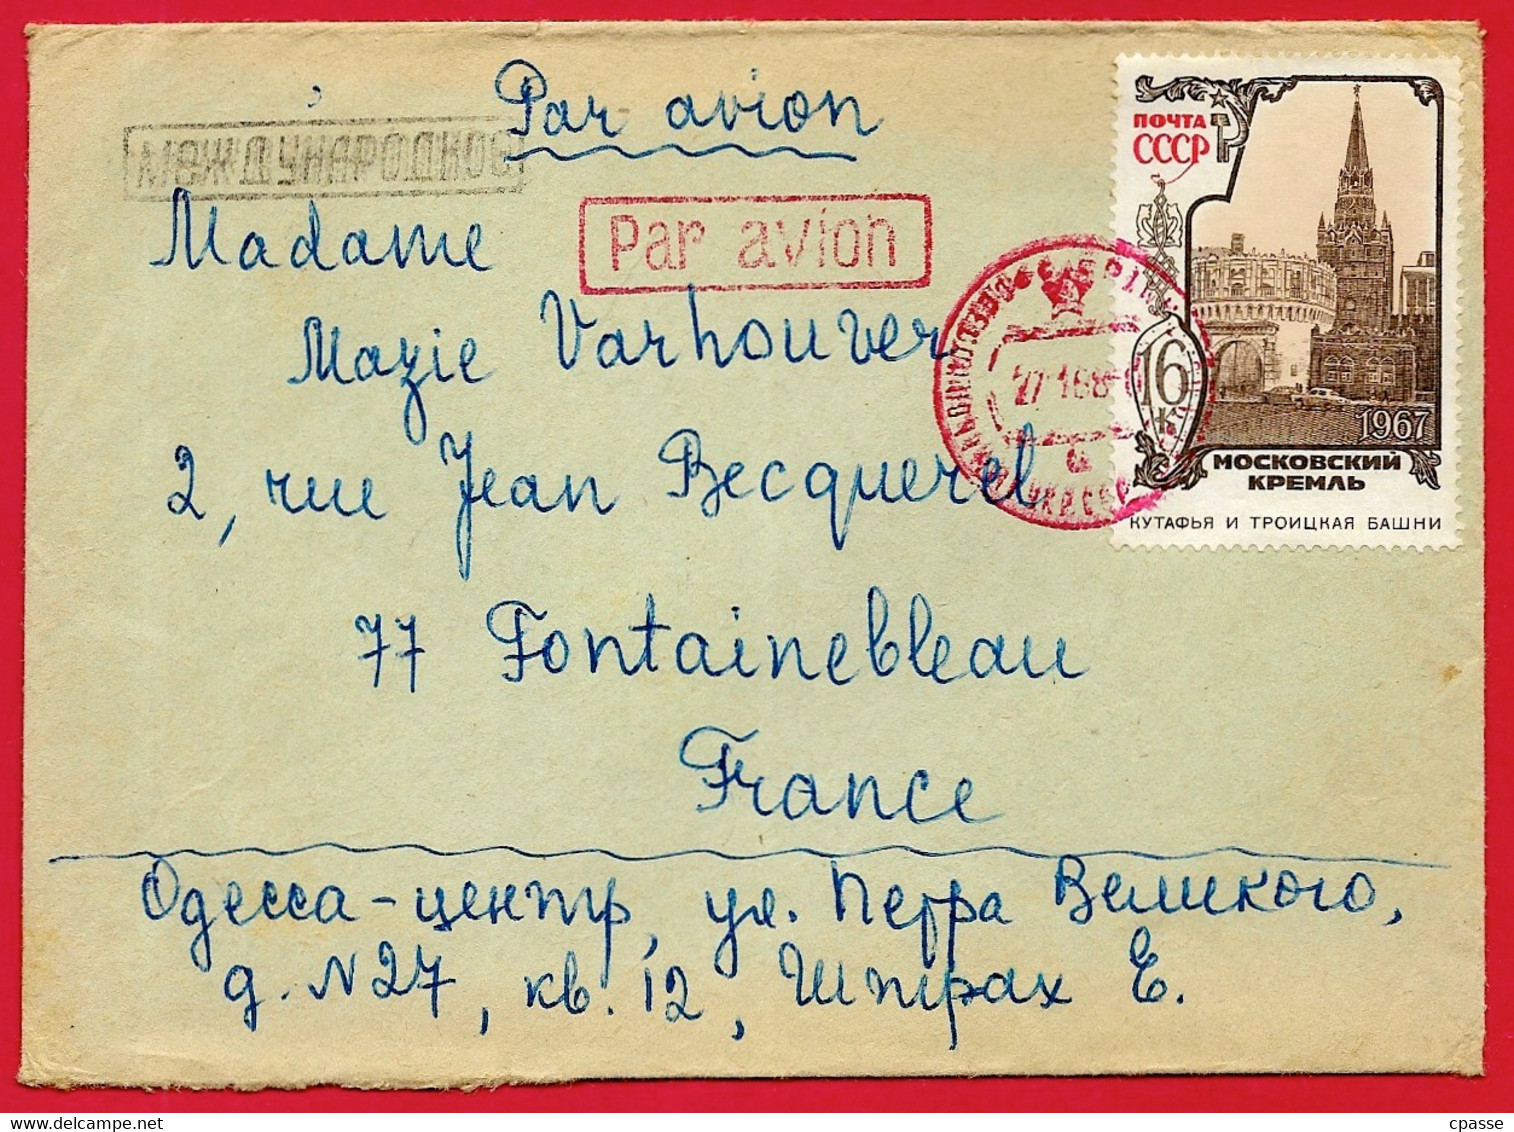 Par avion
международное
Par avion
Madame
Mazie Varhouver
2, rue Jean Becquerel
77 Fontainebleau
France
ПОЧТА
СССР
16
К
1967
МОСКОВСКИЙ
КРЕМЛЬ
КУТАФЬЯ И ТРОИЦКАЯ БАШНИ
Одесса-центр, ул. Петра Великого,
д. N27, кв. 12, Штрах Е.
www.delcampe.net
cpasse